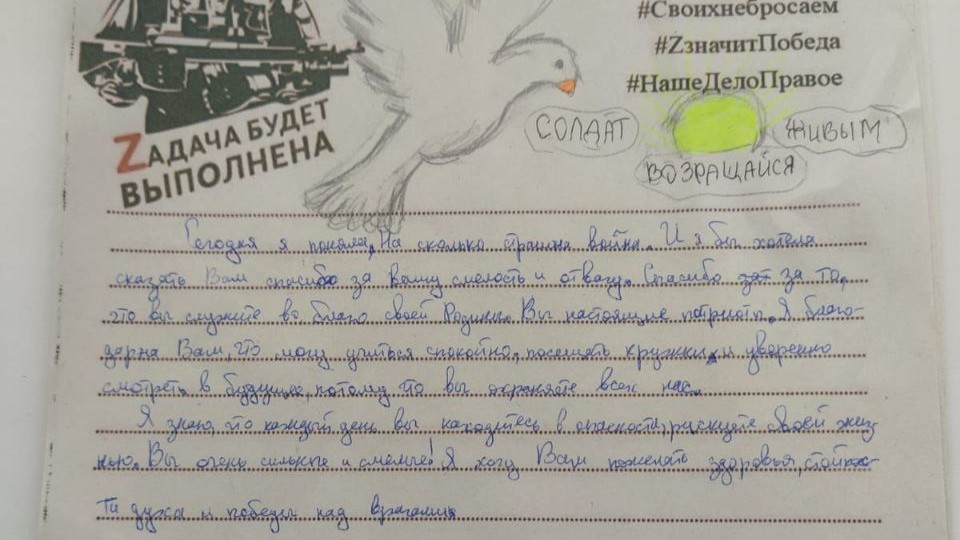 #Своихнебросаем
#ZзначитПобеда
#НашеДелоПравое
ZАДАЧА БУДЕТ
ВЫПОЛНЕНА
СОЛДАТ
ЖИВЫМ
ВОЗРАЩАЙСЯ
Сегодня я поняла, на сколько страшна война. И я бы хотела
сказать Вам спасибо за вашу смелость и отвагу. Спасибо за то,
что вы служите во благо своей Родины. Вы настоящие патриоты. Я благо-
дарна Вам, что могу учиться спокойно, посещать кружки и уверенно
смотреть в будущее, потому что вы охраняете всех нас.
Я знаю, что каждый день вы находитесь в опасности, рискуете своей жиз
нью. Вы очень сильные и смелые! Я хочу Вам пожелать здоровья, стойкос
ти духа и победы над врагами.